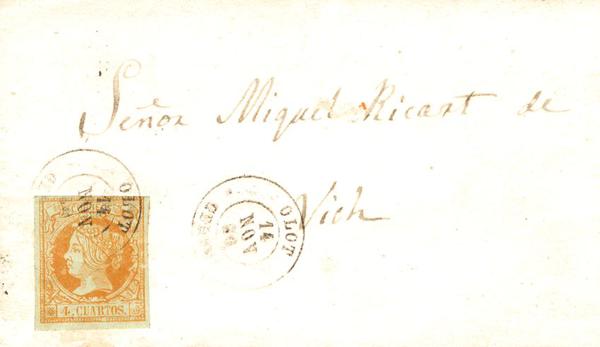 Señor Miguel Ricart de
Vich
OLOT
14
NOV
OLOT
14
NOV
4 CUARTOS.